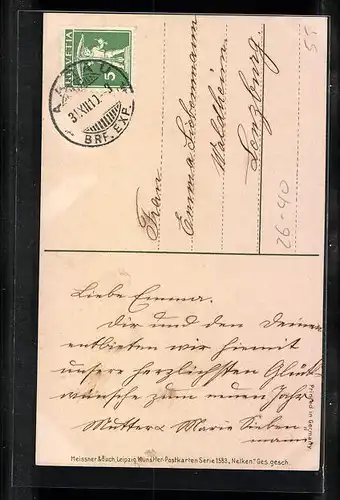 HELVETIA
5
AARAU
31.XII.10.-8
BRF. EXP.
Frau
Emma Siebenmann
Waldheim
Lenzburg.
26-40
Liebe Emma.
Dir und den Deinen
entbieten wir hiemit
unsere herzlichsten Glück-
wünsche zum neuen Jahr
Mutter & Marie Sieben
mann
Printed in Germany
Meissner & Buch, Leipzig. Künstler-Postkarten Serie 1583. „Nelken" Ges. gesch.